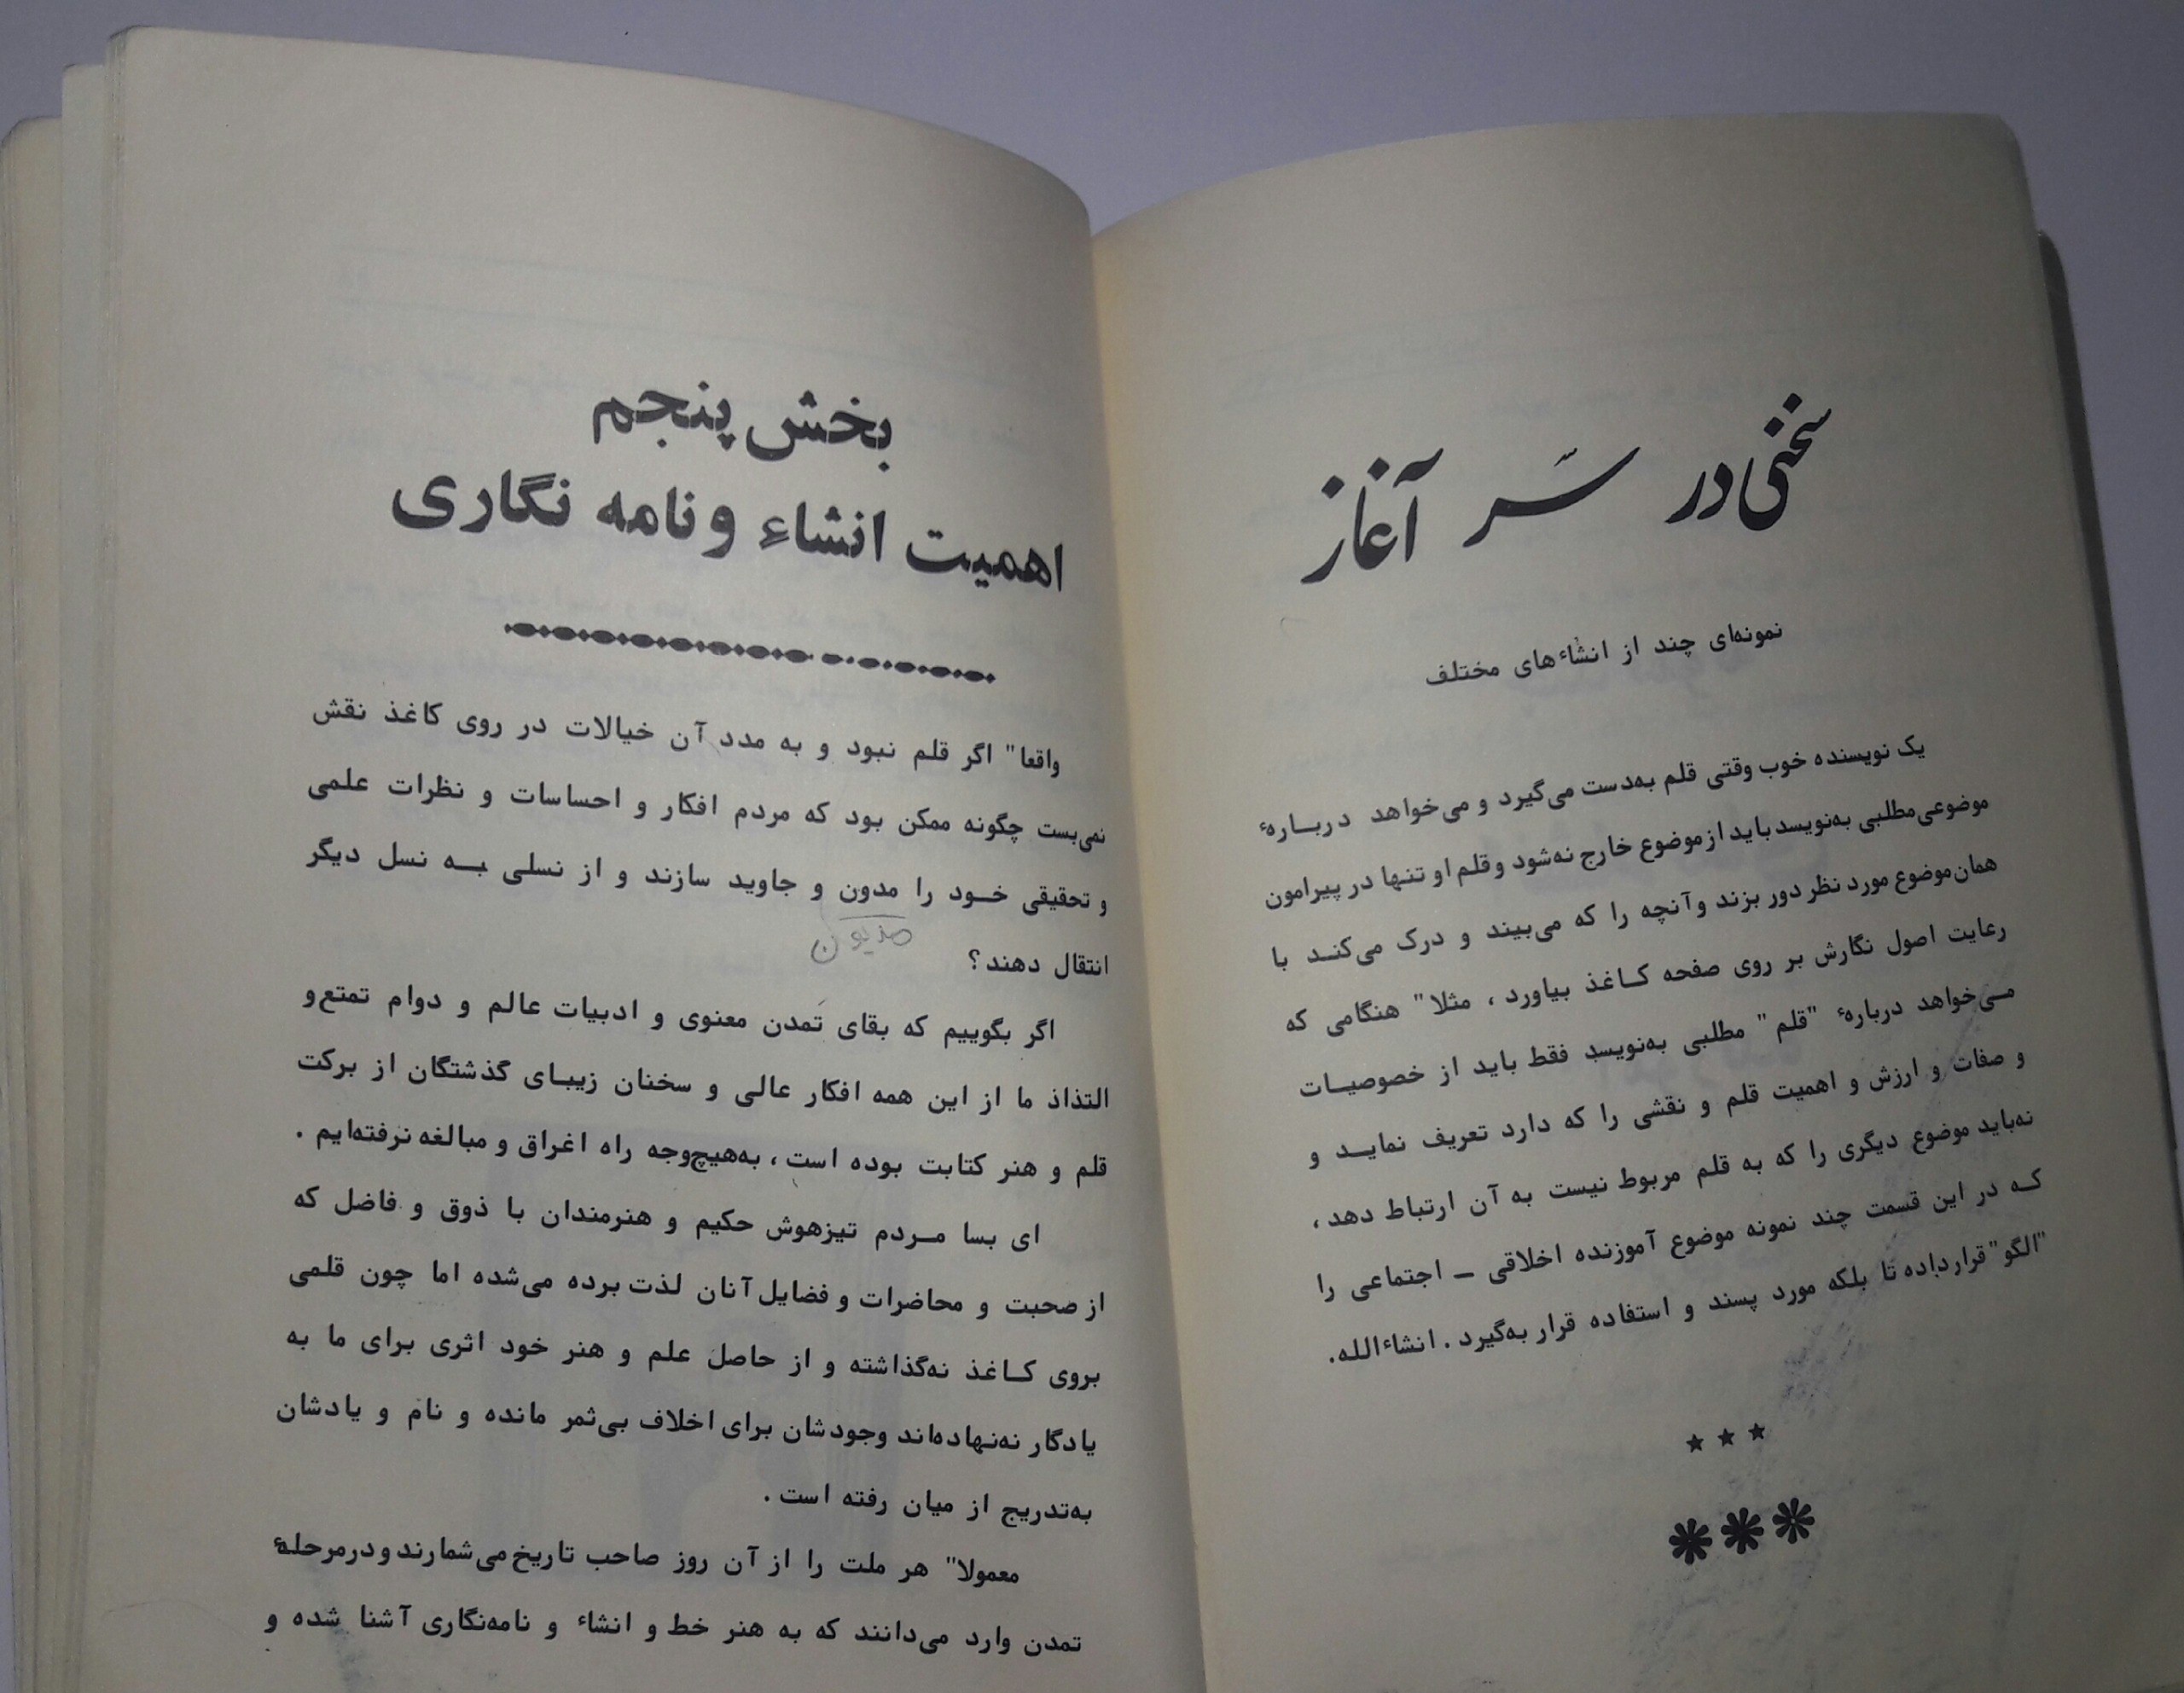 سخنی در سر آغاز
نمونه‌ای چند از انشاء‌های مختلف
یک نویسنده خوب وقتی قلم به‌دست می‌گیرد و می‌خواهد دربــارهٔ
موضوعی مطلبی به‌نویسد باید از موضوع خارج نه‌شود و قلم او تنها در پیرامون
همان موضوع مورد نظر دور بزند و آنچه را که می‌بیند و درک می‌کنــد با
رعایت اصول نگارش بر روی صفحه کــاغذ بیاورد ، مثلا" هنگامی که
مــی‌خواهد دربارهٔ "قلم" مطلبی به‌نویسد فقط باید از خصوصیــات
و صفات و ارزش و اهمیت قلم و نقشی را که دارد تعریف نمایــد و
نه‌باید موضوع دیگری را که به قلم مربوط نیست به آن ارتباط دهد،
کــه در این قسمت چند نمونه موضوع آموزنده اخلاقی ــ اجتماعی را
"الگو" قرارداده تا بلکه مورد پسند و استفاده قرار به‌گیرد . انشاءالله.
بخش پنجم
اهمیت انشاء و نامه نگاری
واقعا" اگر قلم نبود و به مدد آن خیالات در روی کاغذ نقش
نمی‌بست چگونه ممکن بود که مردم افکار و احساسات و نظرات علمی
و تحقیقی خــود را مدون و جاوید سازند و از نسلی بــه نسل دیگر
انتقال دهند؟
اگر بگوییم که بقای تمدن معنوی و ادبیات عالم و دوام تمتع و
التذاذ ما از این همه افکار عالی و سخنان زیبــای گذشتگان از برکت
قلم و هنر کتابت بوده است، به‌هیچ‌وجه راه اغراق و مبالغه نرفته‌ایم .
ای بسا مــردم تیزهوش حکیم و هنرمندان با ذوق و فاضل که
از صحبت و محاضرات و فضایل آنان لذت برده می‌شده اما چون قلمی
بروی کــاغذ نه‌گذاشته و از حاصل علم و هنر خود اثری برای ما به
یادگار نه‌نهاده‌اند وجودشان برای اخلاف بی‌ثمر مانده و نام و یادشان
به‌تدریج از میان رفته است .
معمولا" هر ملت را از آن روز صاحب تاریخ می‌شمارند و در مرحلهٔ
تمدن وارد می‌دانند که به هنر خط و انشاء و نامه‌نگاری آشنا شده و